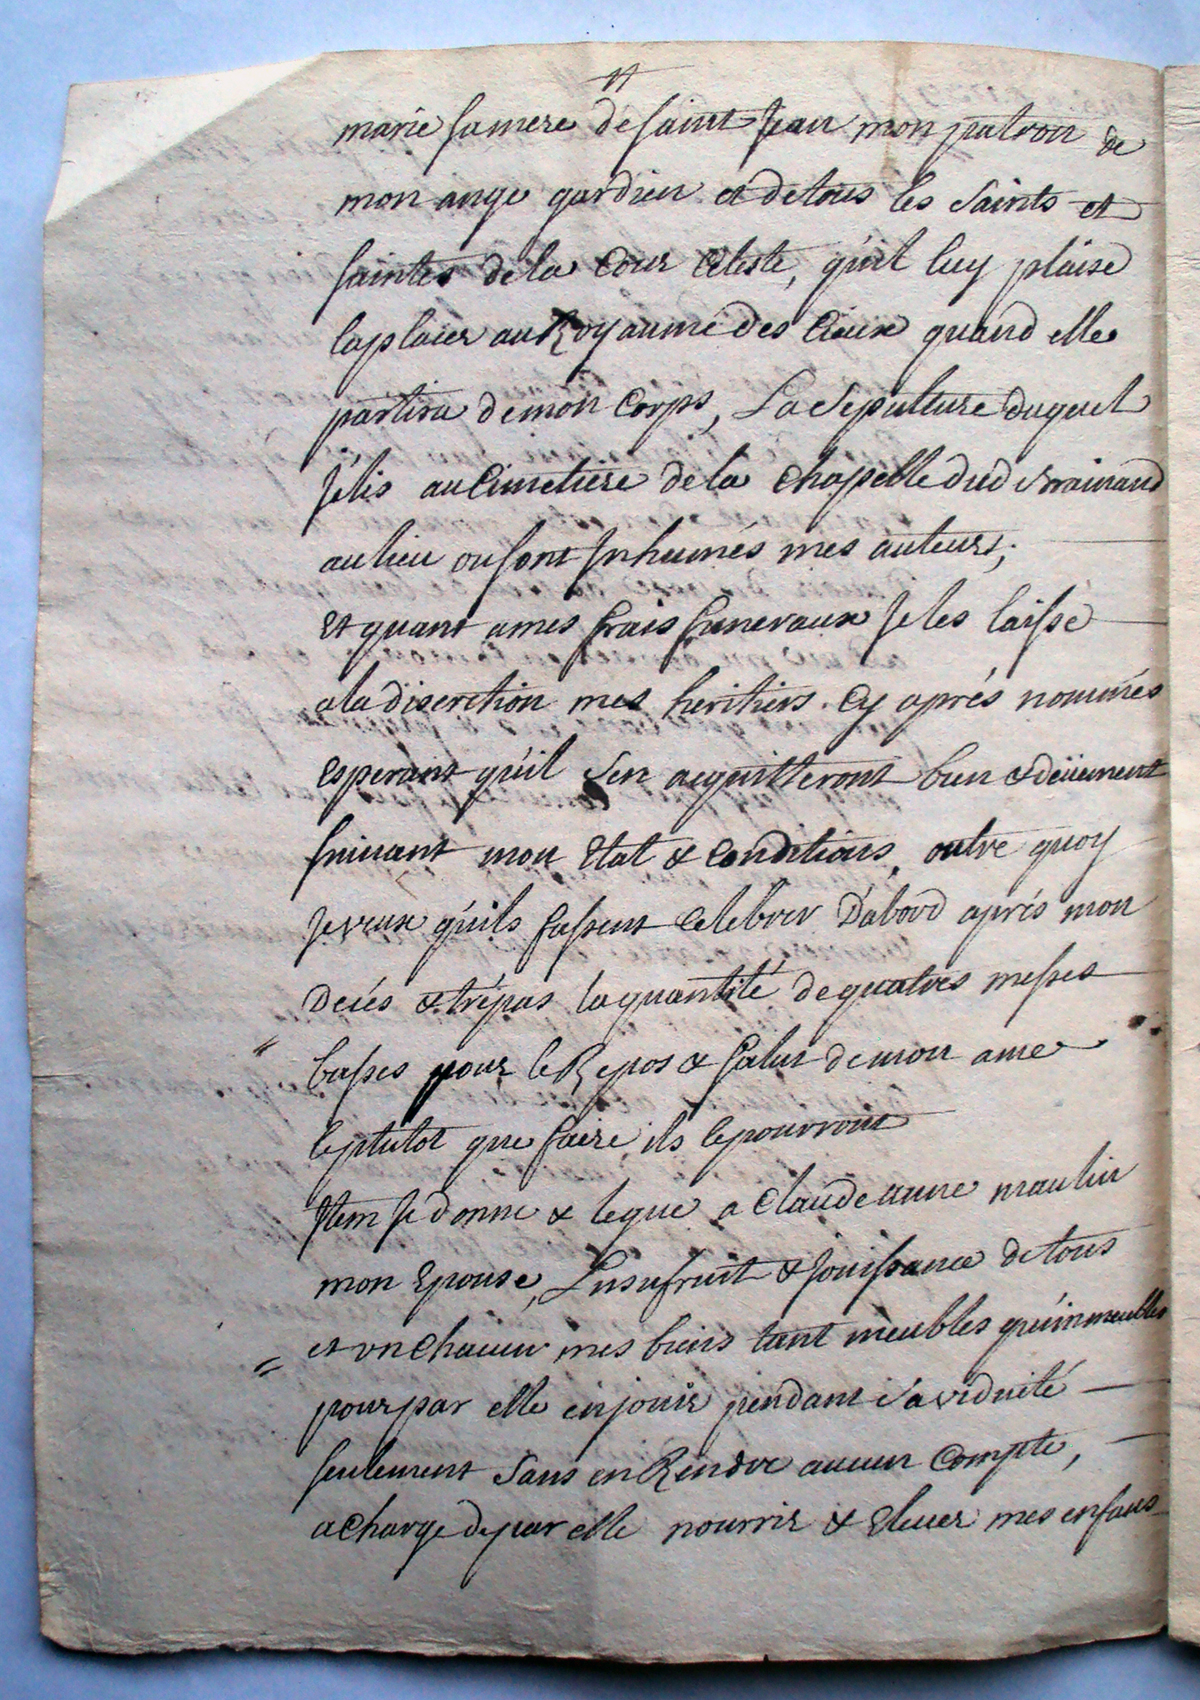 marie sa mere de saint Jean mon patron de
mon ange gardien et de tous les saints et
saintes de la Cour Celeste, qu'il luy plaise
la placer au Royaume des Cieux quand elle
partira de mon Corps, La sepulture duquel
J'elis au Cimetiere de la Chapelle dud
au lieu ou sont Inhumés mes auteurs,
Et quant a mes frais funeraux Je les laisse
a la discretion mes heritiers cy aprés nommés
Esperant qu'il s'en acquitteront bien & deüement
suivant mon Etat & Conditions, outre quoy
Je veux qu'ils fassent Celebrer D'abord aprés mon
Decés & trépas la quantité de quatres messes
basses pour le Repos & salut de mon ame
le plutot que faire ils le pourront
Item Je donne & legue a Claude anne maulin
mon Epouse, L'usufruit & Jouissance de tous
et vn Chacun mes biens tant meubles qu'inmeubles
pour par elle en jouir pendant sa viduité
seulement sans en Rendre aucun Compte,
a Charge de par elle nourrir & Elever mes enfans